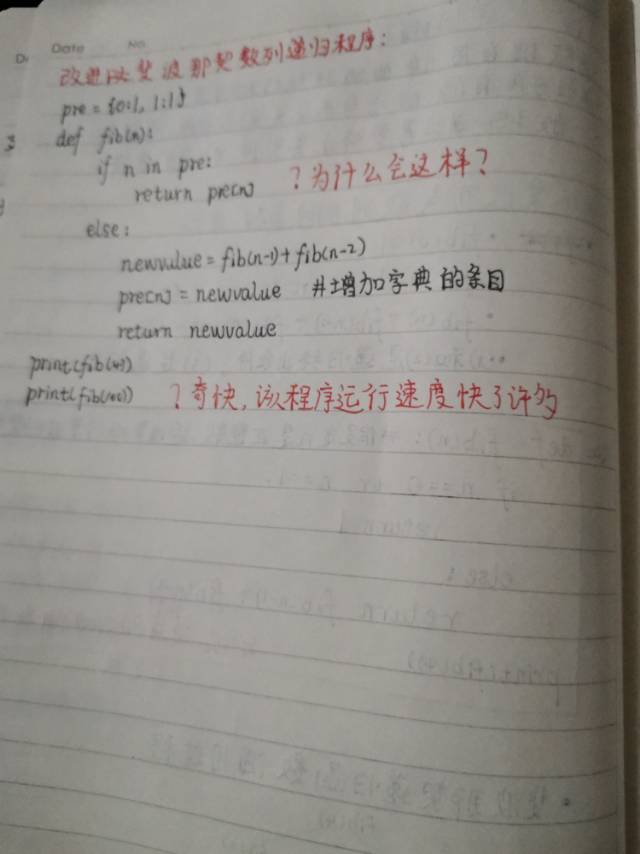 Date No.
改进以斐波那契数列递归程序：
pre = {0:1, 1:1}
def fib(n):
if n in pre:
return pre[n] ？为什么会这样？
else:
newvalue = fib(n-1)+fib(n-2)
pre[n] = newvalue #增加字典的条目
return newvalue
print(fib(4))
print(fib(40)) ？奇快，该程序运行速度快了许多